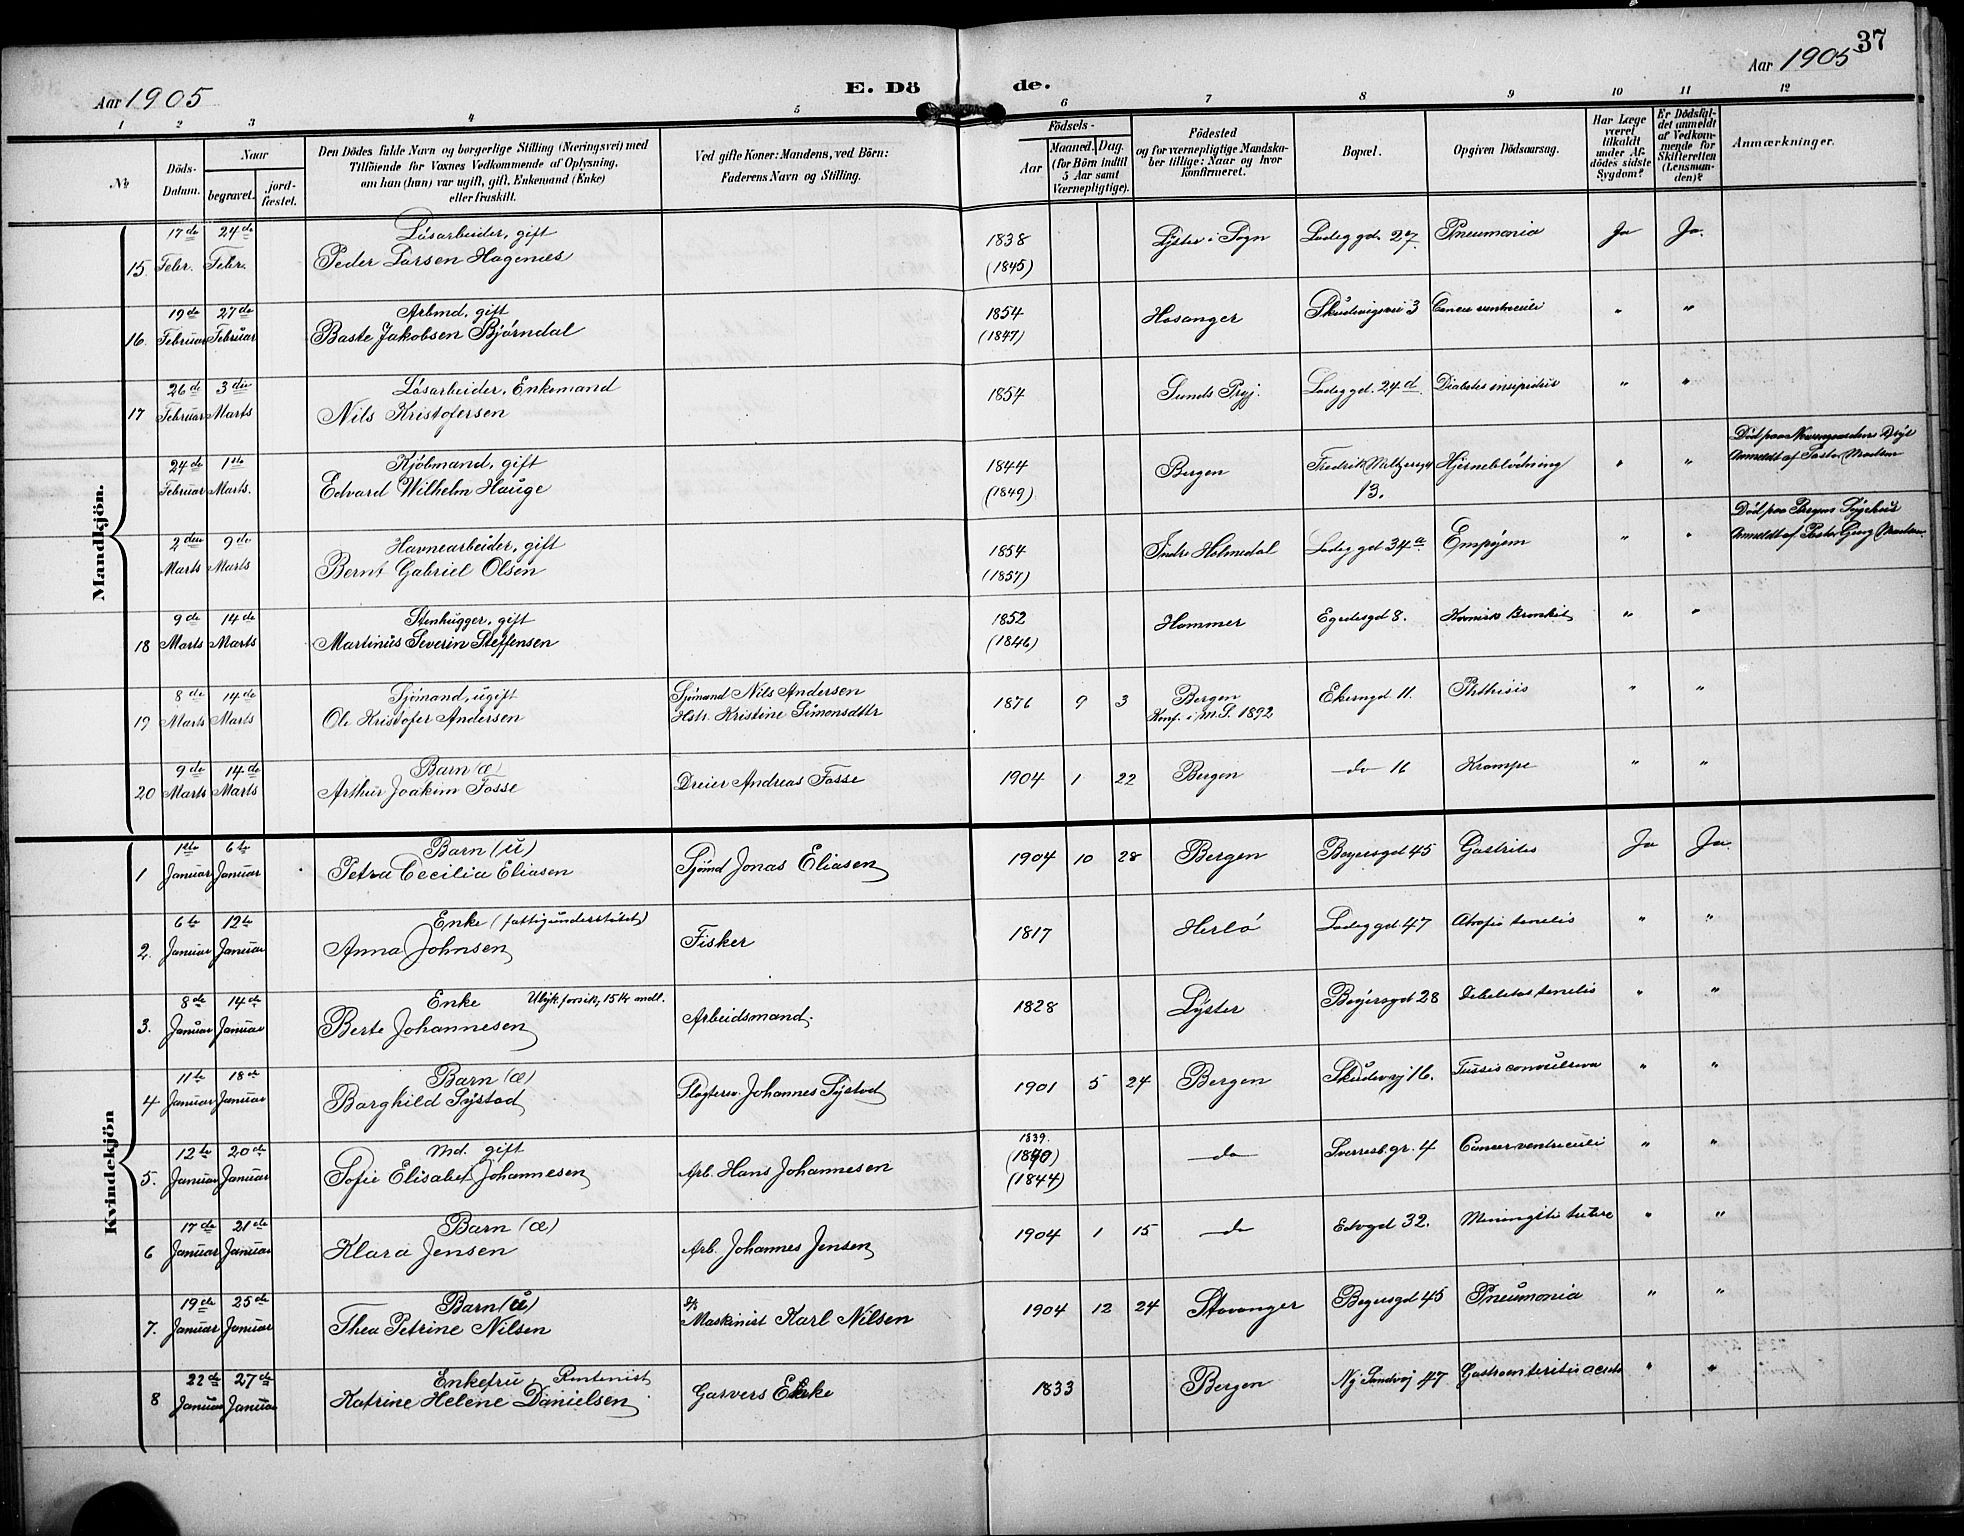 37
Aar 1905
E. Dö de.
Aar 1905
1 2 3 4 5 6 7 8 9 10 11 12
No.
Döds-Datum.
Naar
begravet.
jord-fæstet.
Den Dödes fulde Navn og borgerlige Stilling (Næringsvei) med
Tilföiende for Voxnes Vedkommende af Oplysning,
om han (hun) var ugift, gift, Enkemand (Enke)
eller fraskilt.
Ved gifte Koner: Mandens, ved Börn:
Faderens Navn og Stilling.
Födsels-
Aar
Maaned. Dag.
(for Börn indtil
5 Aar samt
Værnepligtige).
Födested
og for værnepligtige Mandska-
ber tillige: Naar og hvor
konfirmeret.
Bopæl.
Opgiven Dödsaarsag.
Har Læge
været
tilkaldt
under Af-
dödes sidste
Sygdom?
Er Dödsfal-
det anmeldt
af Vedkom-
mende for
Skifteretten
(Lensman-
den)?
Anmærkninger.
Mandkjön.
17de 24de Løsarbeider, gift 1838 Lyster i Sogn Ladeggd. 27 Pneumonia Ja Ja.
15 Febr. Febr. Peder Larsen Hagenæs (1845)
19de 27de Arbmd, gift 1854 Hosanger Skudevigsvei 3 Cancer ventriculi " "
16. Februar Februar Baste Jakobsen Bjørndal (1847)
26de 3die Løsarbeider, Enkemand 1854 Sunds Prgj. Ladeggd. 24d Diabetes insipidus " "
17 Februar Marts Nils Kristofersen
24de 1ste Kjølmand, gift 1844 Bergen Fredrik Meltzersgd Hjerneblødning " "
Februar Marts. Edvard Wilhelm Hauge (1849) 13.
Anmeldt af Pastor Madsen
2den 9de Havnearbeider, gift 1854 Indre Holmedal Ladeggd 34a Empyem " "
Marts Marts Bernt Gabriel Olsen (1857)
Død paa Bergens Sygehus
9de 14de Stenhugger, gift 1852 Hammer Egedesgd 8. Kronisk Bronkit " "
18 Marts Marts Martinus Severin Steffensen (1846)
8de 14de Sjømand, ugift Sjømand Nils Andersen 1876 9 3 Bergen Ekerngd 11. Phthisis " "
19 Marts Marts Ole Kristofer Andersen Hstr. Kristine Simonsdttr Konf. i M.S. 1892
9de 14de Barn (æ) Dreier Andreas Fosse 1904 1 22 Bergen do 16 Krampe " "
20 Marts Marts Arthur Joakim Fosse
Kvindekjön
1ste 6te Barn (u) Sjømd Jonas Eliasen 1904 10 28 Bergen Beyersgd 45 Gastritis Ja Ja.
1 Januar Januar Petra Cecilia Eliasen
6te 12te Enke (fattigunderstøttet) Fisker 1817 Herlø Ladeggd 47 Atrofia senilis " "
2. Januar Januar Anna Johnsen
8de 14de Enke Ulyk.forsik, 15 Kr mdl. Arbeidsmand. 1828 Lyster Beyersgd 28 Debilitas senilis " "
3. Januar Januar Berte Johannesen
11te 18de Barn (æ) 1901 5 24 Bergen Skudevvj 16. Tussis convulsiva " "
4 Januar Januar Borghild Systad Slagtersv. Johannes Systad
12te 20de Md. gift Arb. Hans Johannesen 1839. (1840) (1844) do Sverresb.gr. 4 Cancer ventriculi " "
5. Januar Januar Sofie Elisabet Johannesen
17de 21de Barn (æ) Arb. Johannes Jensen 1904 1 15 do Edvgd 32. " "
6 Januar Januar Klara Jensen
19de 25de Barn (u) Maskinist Karl Nilsen 1904 12 24 Stavanger Beyersgd 45 Pneumonia " "
7. Januar Januar Thea Petrine Nilsen
22de 27de Enkefru Rentenist Garvers Enke 1833 Bergen Ny Sandvvj 47 Gastroenteritis acuta " "
8 Januar Januar Katrine Helene Danielsen